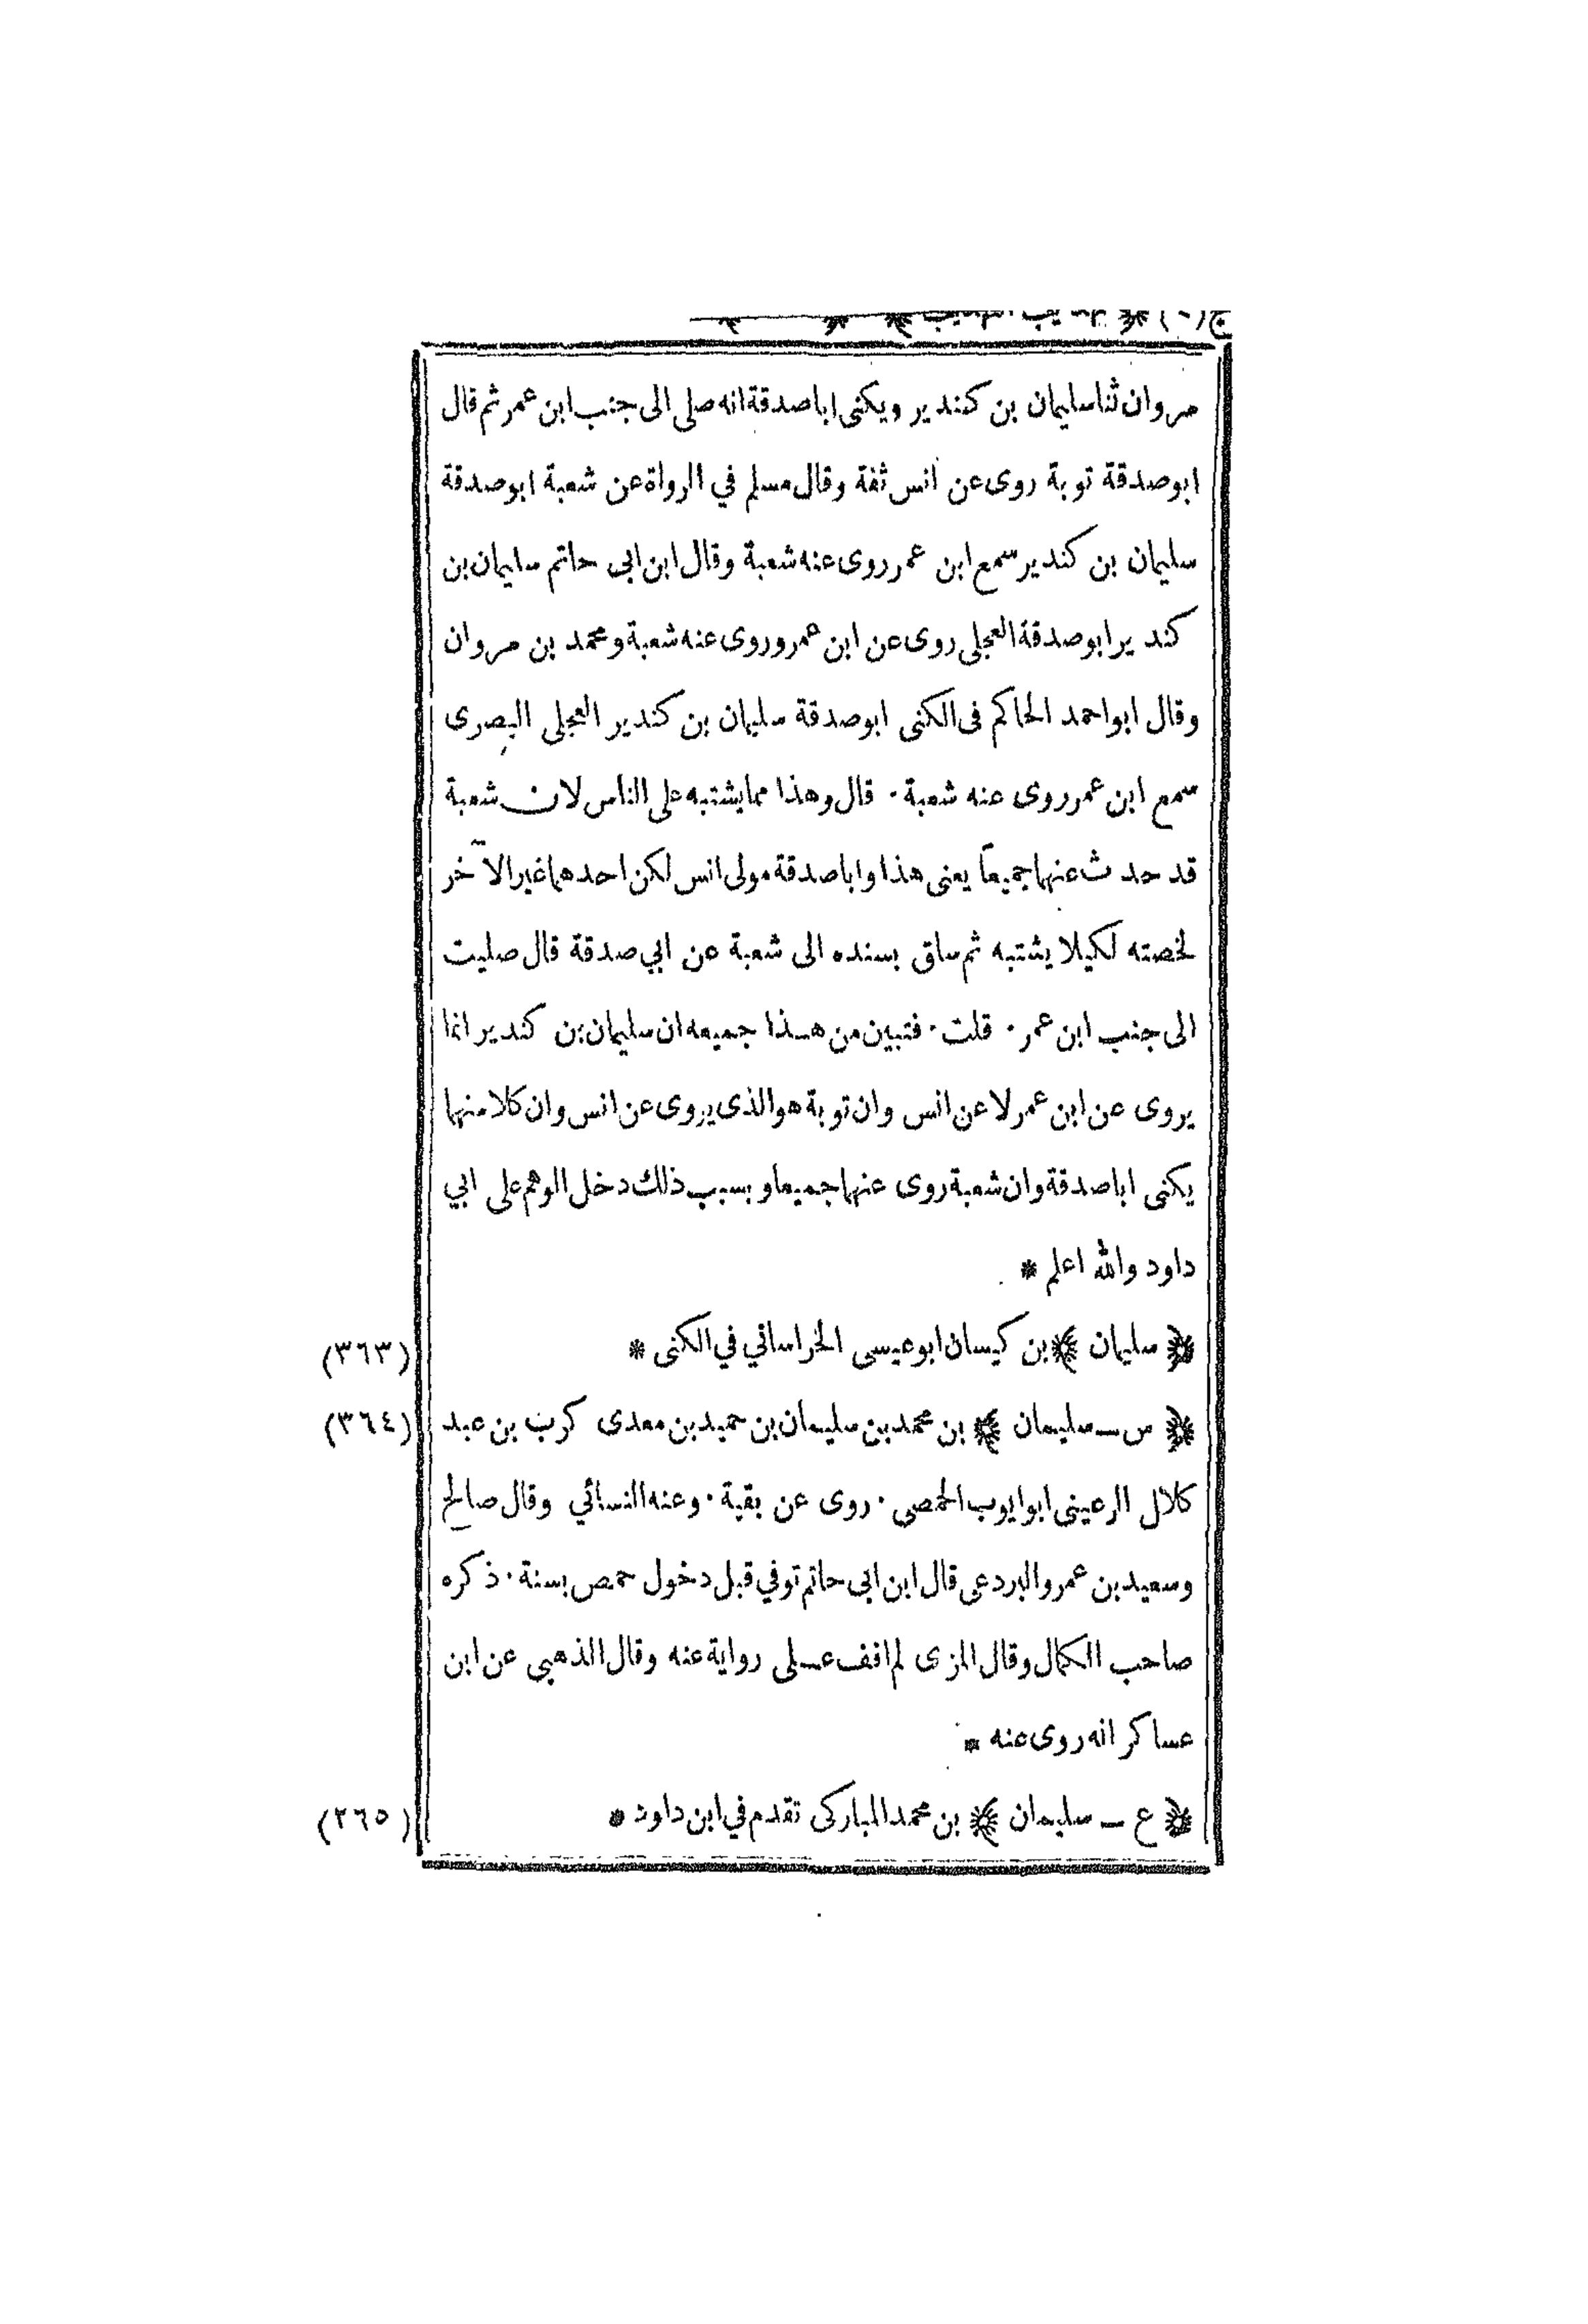 مروان ثنا سليمان بن كندير ويكنى ابا صدقة انه صلى الى جنب ابن عمر ثم قال
ابو صدقة توبة روى عن انس ثقة وقال مسلم في الرواة عن شعبة ابو صدقة
سليمان بن كندير سمع ابن عمر روى عنه شعبة وقال ابن ابى حاتم سليمان بن
كندير ابو صدقة العجلى روى عن ابن عمر وروى عنه شعبة ومحمد بن مروان
وقال ابو احمد الحاكم فى الكنى ابو صدقة سليمان بن كندير العجلى البصرى
سمع ابن عمر روى عنه شعبة · قال وهذا مما يشتبه على الناس لان شعبة
قد حدث عنهما جميعاً يعنى هذا وابا صدقة مولى انس لكن احدهما غير الآخر
لخصته لكيلا يشتبه ثم ساق بسنده الى شعبة عن ابي صدقة قال صليت
الى جنب ابن عمر · قلت · فتبين من هـذا جميعه ان سليمان بن كندير انما
يروى عن ابن عمر لا عن انس وان توبة هو الذى يروى عن انس وان كلا منهما
يكنى ابا صدقة وان شعبة روى عنهما جميعا وبسبب ذلك دخل الوهم على ابي
داود والله اعلم *
﴿ سليمان ﴾ بن كيسان ابو عيسى الخراساني في الكنى * (٣٦٣)
﴿ س ـ سليمان ﴾ بن محمد بن سليمان بن حميد بن معدى كرب بن عبد (٣٦٤)
كلال الرعينى ابو ايوب الحمصى · روى عن بقية · وعنه النسائي وقال صالح
وسعيد بن عمرو البردعى قال ابن ابى حاتم توفي قبل دخول حمص بسنة · ذكره
صاحب الكمال وقال المزى لم اقف عـلى رواية عنه وقال الذهبى عن ابن
عساكر انه روى عنه *
﴿ ع ـ سليمان ﴾ بن محمد المباركى تقدم في ابن داود * (٣٦٥)